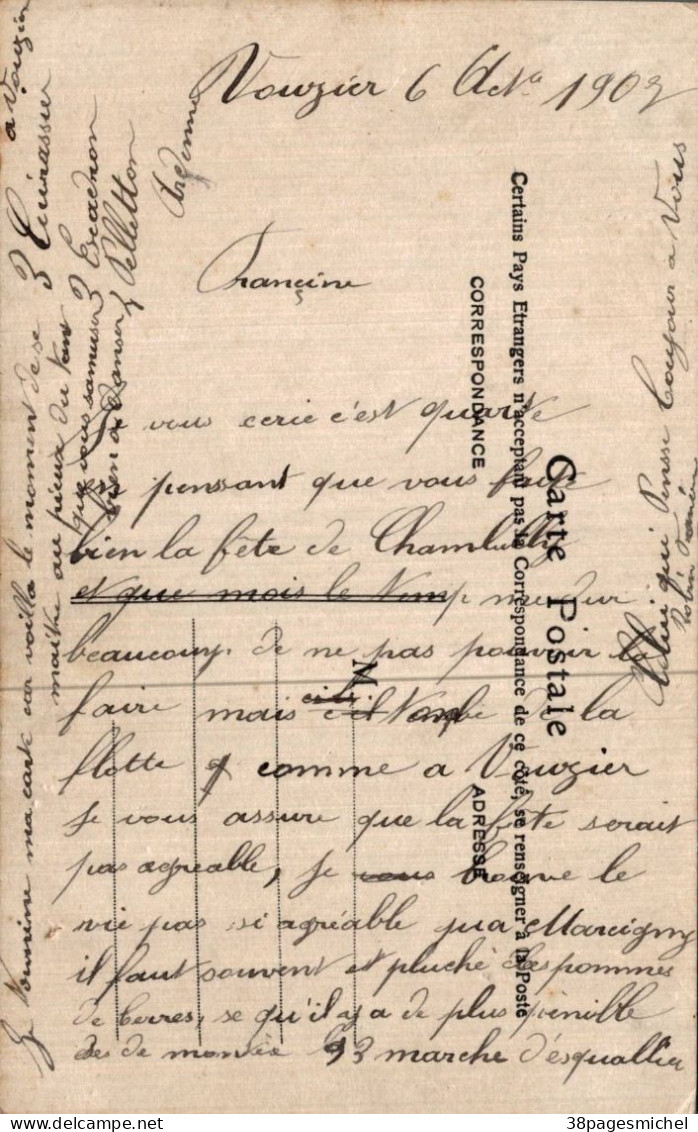 Vouzier 6 Octo 1903
Françine
Je vous ecrie c'est quarte
en pensant que vous faite
bien la fête de Chambilly
et que mois le temp me dur
beaucoup de ne pas pouvoir la
faire mais s'il tombe de la
flotte comme a Vouzier
Je vous assure que la fête serait
pas agréable, Je vous trouve le
vie pas si agréable qua Marcigny
il faut souvent et pluché des pommes
de terres, se qu'il y a de plus pénible
ses de montée 93 marche d'esquallier
Je termine ma carte car voilla le moment de se
maître au pieux du tant
que vous samuser
bien a danser
3 Cuirassier a Vouzier
3 Escadron
2 Pelletton
Ardenne
Celui qui Pensse toujour a Vous
Carte Postale
Certains Pays Etrangers n'acceptant pas la Correspondance de ce côté, se renseigner à la Poste
CORRESPONDANCE
ADRESSE
M
Delcampe.net
38pagesmichel